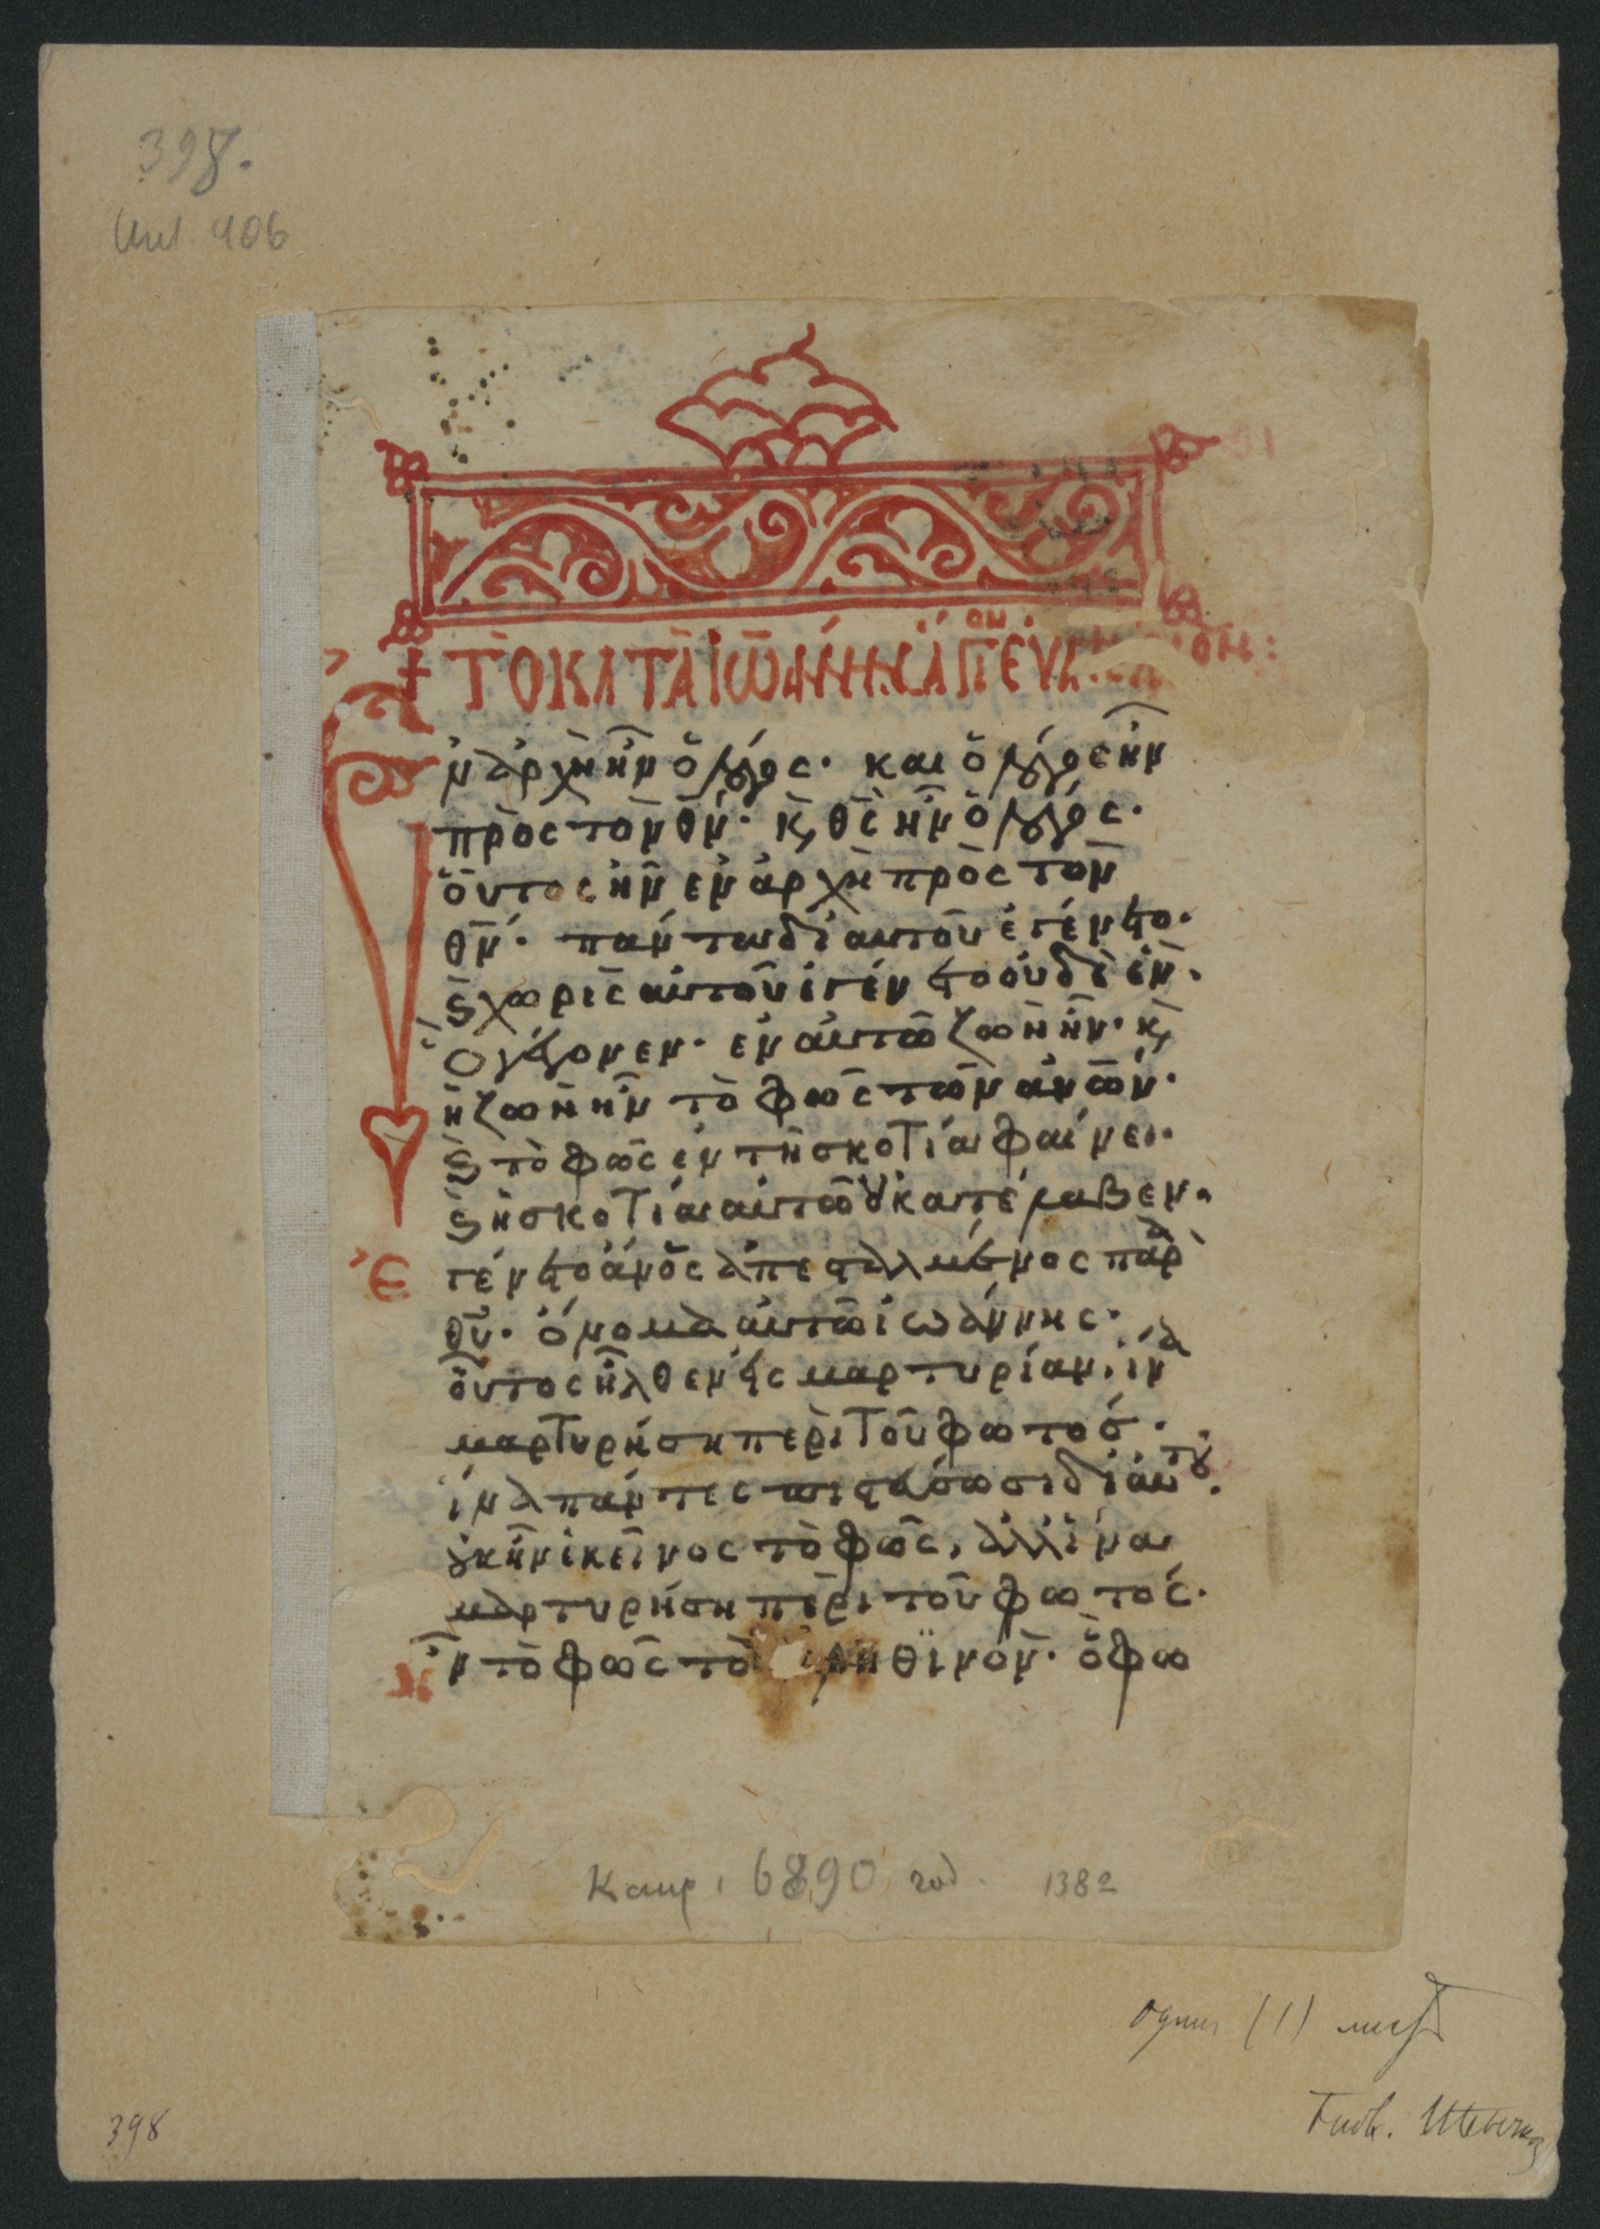 398.
Инв. 406
† ΤΟ ΚΑΤΑ ΙΩΑΝΝΗΝ ΑΓΙΟΝ ΕΥΑ
Ἐν ἀρχῆ ἦν ὁ λόγος. και ὁ λόγος ἦν
πρὸς τὸν θν. κ θς ἦν ὁ λόγος.
οὗτος ἦν ἐν ἀρχῆ πρὸς τὸν
θν. πάντα δι αυτοῦ ἐγένετο.
κ χωρὶς αὐτοῦ ἐγένετο οὐδὲ ἓν.
ὃ γέγονεν. ἐν αὐτῶ ζωὴ ἦν. κ
ἡ ζωὴ ἦν τὸ φῶς τῶν ανων.
κ τὸ φῶς ἐν τῆ σκοτία φαίνει.
κ ἡ σκοτία αὐτῶ οὐ κατέλαβεν.
Ἐγένετο ἀνος ἀπεσταλμένος παρὰ
θυ. ὄνομα αὐτῶ ἰωάννης.
οὗτος ἦλθεν εἰς μαρτυρίαν. ἵνα
μαρτυρήση περὶ τοῦ φωτός.
ἵνα πάντες πιστεύσωσι δι αὐτοῦ.
οὐκ ἦν ἐκεῖνος τὸ φῶς, ἀλλ ἵνα
μαρτυρήση περὶ τοῦ φωτός.
Ἦν τὸ φῶς τὸ ἀληθινὸν. ὃ φω
6890 год. 1382
один (1) лист
398
Библ.